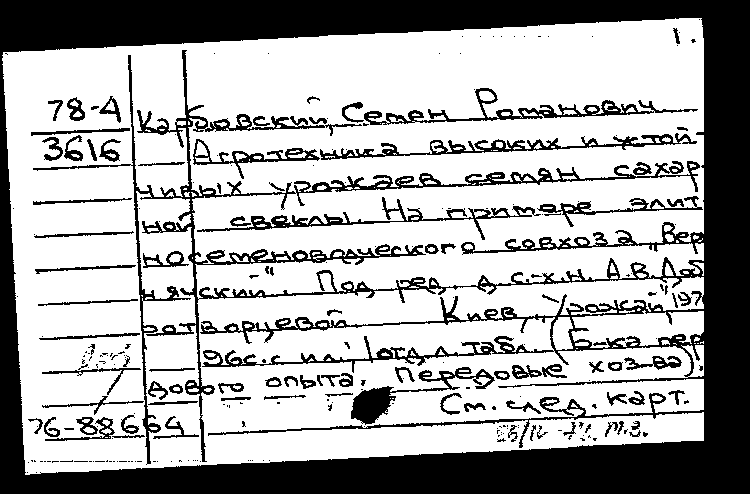 1.
78-4
3616
Карбовский, Семен Романович.
Агротехника высоких и устой-
чивых урожаев семян сахар-
ной свеклы. На примере элит
носеменоводческого совхоза „Вер
нячский". Под ред. д. с.-х. н. А. В. Доб
ротворцевой. Киев, „Урожай", 197
96 с. с ил.; 1 отд. л. табл. (Б-ка пер
дового опыта. Передовые хоз-ва).
76-88664
См. след. карт.